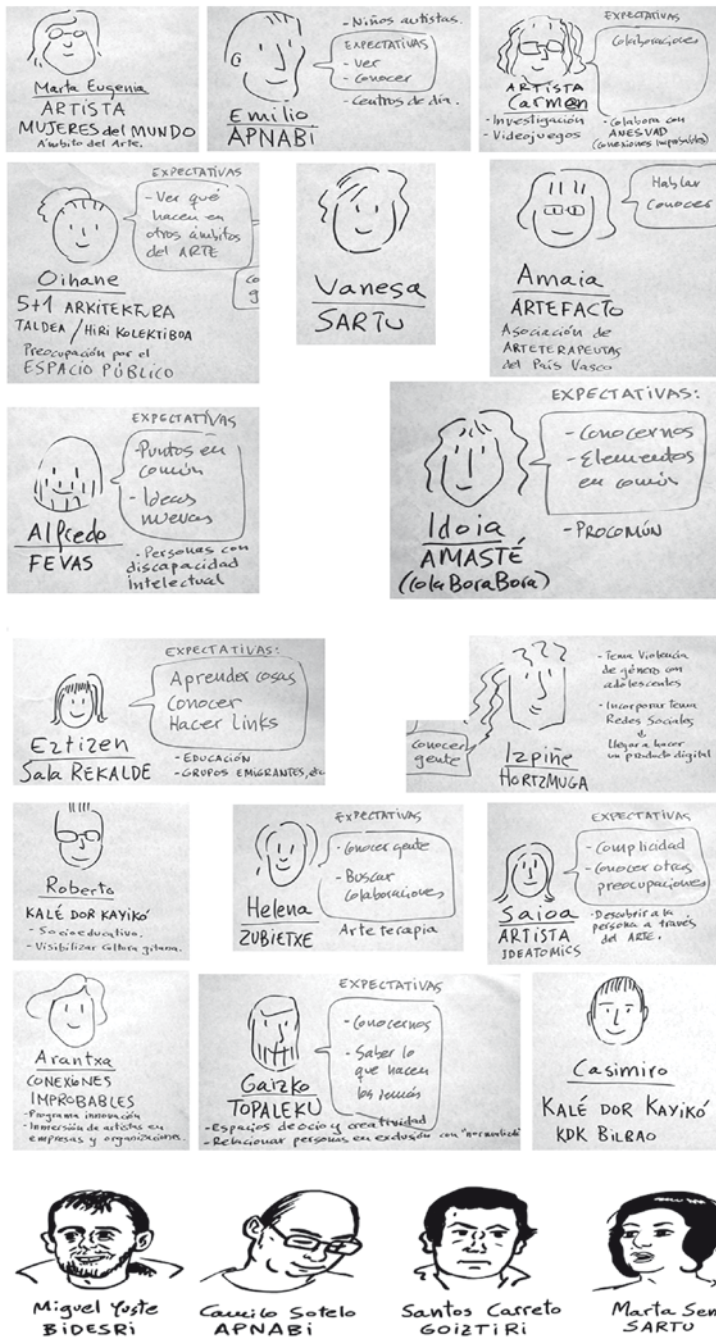 Marta Eugenia
ARTISTA
MUJERES del MUNDO
Ámbito del Arte.
- Niños autistas.
EXPECTATIVAS
- Ver
- Conocer
- Centros de día.
Emilio
APNABI
EXPECTATIVAS
Colaboraciones
ARTISTA
Carmen
- Investigación
- Videojuegos
- Colabora con
ANESVAD
(conexiones improbables)
EXPECTATIVAS
- Ver qué
hacen en
otros ámbitos
del ARTE
Co
g
Oihane
5+1 ARKITEKTURA
TALDEA / HIRI KOLEKTIBOA
Preocupación por el
ESPACIO PÚBLICO
Vanesa
SARTU
Hablar
Conocer
Amaia
ARTEFACTO
Asociación de
ARTETERAPEUTAS
del País Vasco
EXPECTATIVAS
- Puntos en
común
- Ideas
nuevas
Alfredo
FEVAS
- Personas con
discapacidad
intelectual
EXPECTATIVAS:
- Conocernos
- Elementos
en común
- PROCOMÚN
Idoia
AMASTÉ
(ColaBoraBora)
EXPECTATIVAS:
Aprender cosas
Conocer
Hacer Links
Eztizen
Sala REKALDE
- EDUCACIÓN
- GRUPOS EMIGRANTES, etc
- Tema Violencia
de género con
adolescentes
- Incorporar tema
Redes Sociales
Llegar a hacer
un producto digital
conocer
gente
Izpiñe
HORTZMUGA
Roberto
KALÉ DOR KAYIKÓ
- Socioeducativo.
- Visibilizar cultura gitana.
EXPECTATIVAS
- Conocer gente
- Buscar
colaboraciones
Helena
ZUBIETXE
Arteterapia
EXPECTATIVAS
- Complicidad
- Conocer otras
preocupaciones
Saioa
ARTISTA
IDEATOMICS
- Descubrir a la
persona a través
del ARTE.
Arantxa
CONEXIONES
IMPROBABLES
- Programa innovación
- Inmersión de artistas en
empresas y organizaciones.
EXPECTATIVAS
- Conocernos
- Saber lo
que hacen
los demás
Gaizko
TOPALEKU
- Espacios de ocio y creatividad
- Relacionar personas en exclusión con
Casimiro
KALÉ DOR KAYIKÓ
KDK BILBAO
Miguel Yuste
BIDESRI
Camilo Sotelo
APNABI
Santos Carreto
GOIZTIRI
Marta Sen
SARTU